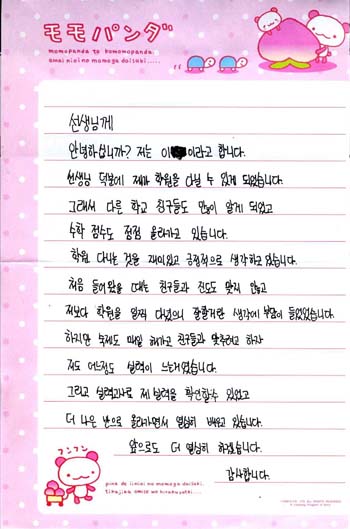 モモパンダ
momopanda to komomopanda
amai nioi no momoga daisuki.....
선생님께
안녕하십니까? 저는 이 이라고 합니다.
선생님 덕분에 제가 학원을 다닐 수 있게 되었습니다.
그래서 다른 학교 친구들도 많이 알게 되었고
수학 점수도 점점 올라가고 있습니다.
학원 다니는 것을 재미있고 긍정적으로 생각하고 있습니다.
처음 들어왔을 때는 친구들과 진도도 맞지 않고
저보다 학원을 일찍 다녔으니 잘할거란 생각에 부담이 들었었습니다.
하지만 숙제도 매일 해가고 친구들과 맞추려고 하자
저도 어느정도 실력이 느는거같습니다.
그리고 실력고사로 제 실력을 확인할수 있었고
더 나은 반으로 올라가면서 열심히 배우고 있습니다.
앞으로도 더 열심히 하겠습니다.
감사합니다.
フンフン
no momoga daisuki.